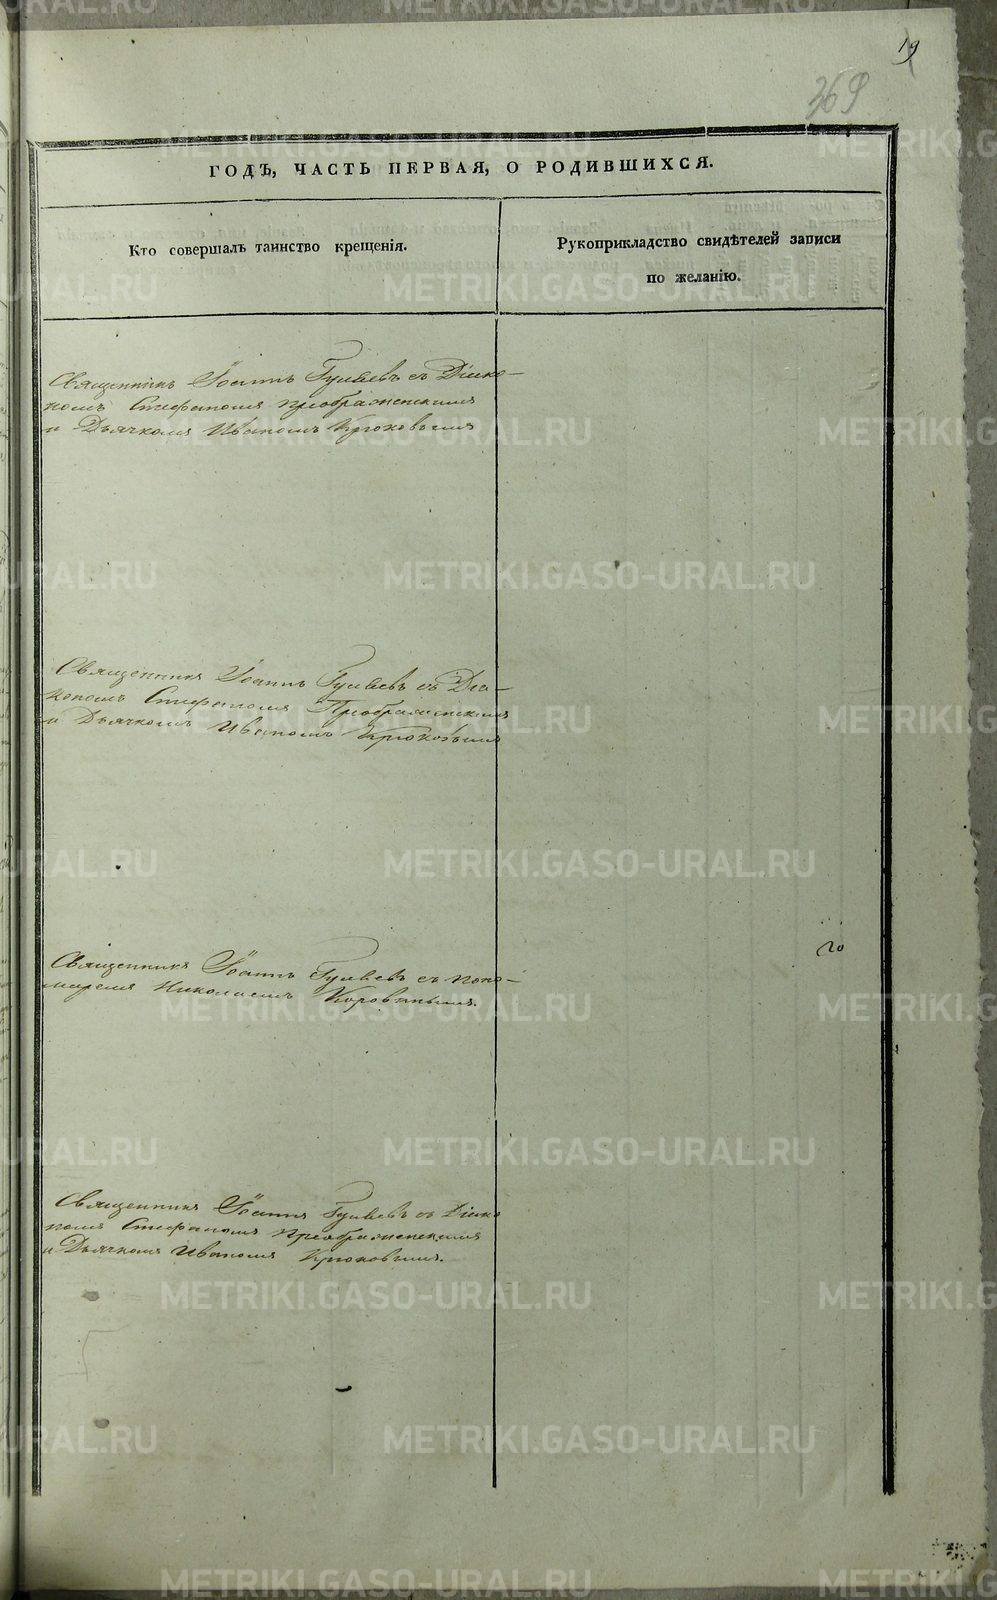 19
369
ГОДЪ, ЧАСТЬ ПЕРВАЯ, О РОДИВШИХСЯ.
Кто совершалъ таинство крещенія.
Рукоприкладство свидѣтелей записи
по желанію.
Священникъ Іоаннъ Гуляевъ съ Діако-
номъ Стефаномъ Преображенскимъ
и Дьячкомъ Иваномъ Крюковымъ
Священникъ Іоаннъ Гуляевъ съ Діа-
кономъ Стефаномъ Преображенскимъ
и Дьячкомъ Иваномъ Крюковымъ
Священникъ Іоаннъ Гуляевъ съ поно-
маремъ Николаемъ Коровинымъ.
Священникъ Іоаннъ Гуляевъ съ Діако
номъ Стефаномъ Преображенскимъ
и Дьячкомъ Иваномъ Крюковымъ.
METRIKI.GASO-URAL.RU